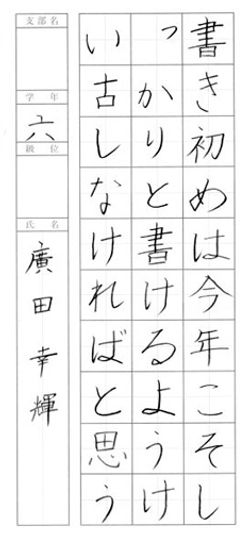 書き初めは今年こそし
っかりと書けるようけ
い古しなければと思う
支部名
学年
六
級位
氏名
廣田幸輝